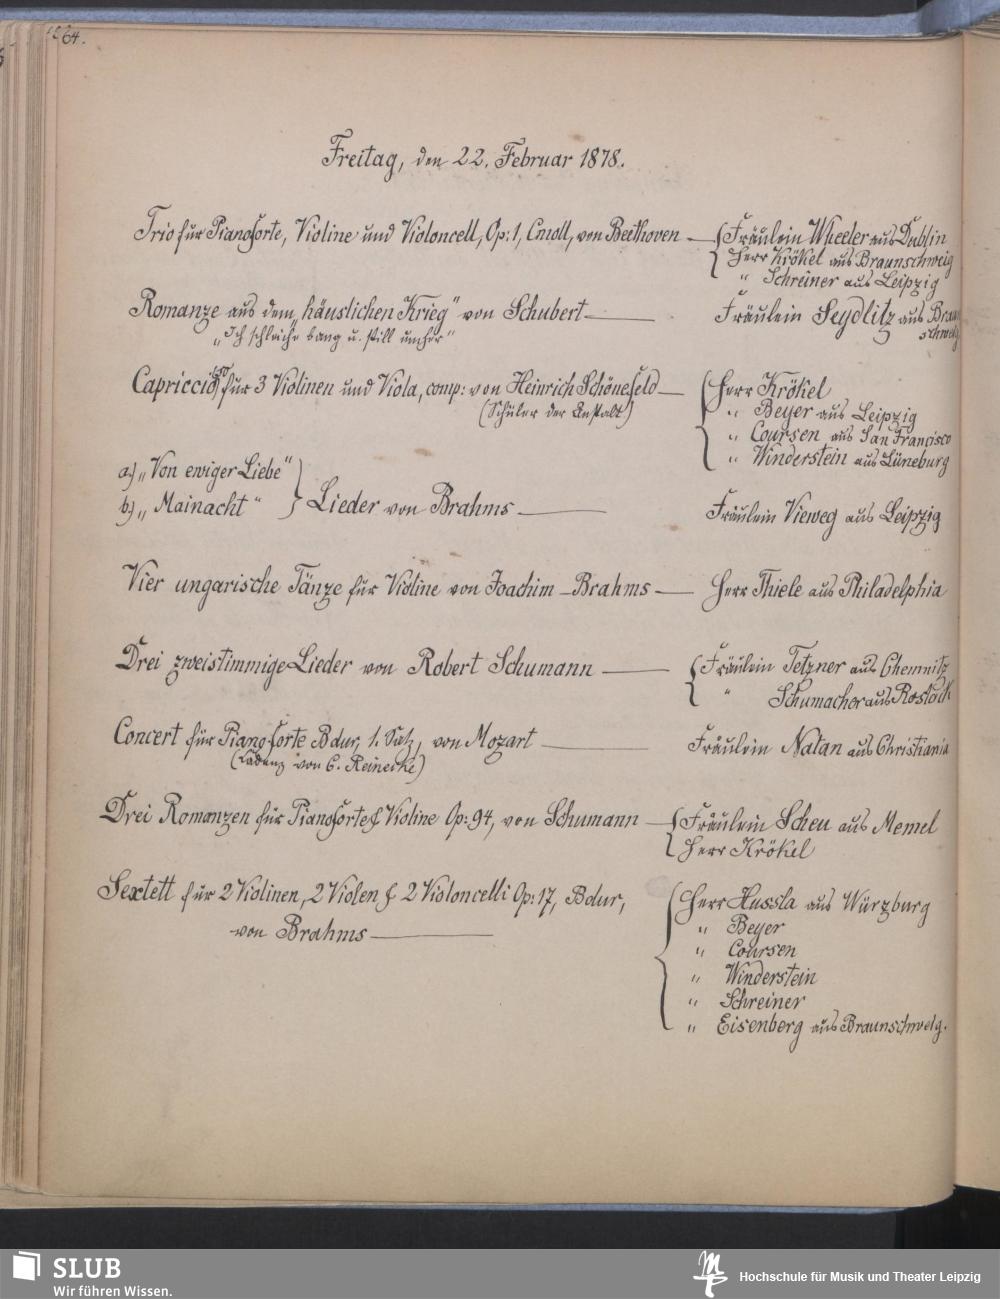 64.
Freitag, den 22. Februar 1878.
Trio für Pianoforte, Violine und Violoncell, Op: 1, Cmoll, von Beethoven — Fräulein Wheeler aus Dublin
Herr Krökel aus Braunschweig
" Schreiner aus Leipzig
Romanze aus dem „häuslichen Krieg" von Schubert — Fräulein Seydlitz aus Braun
schweig
„Ich schleiche bang u. still umher"
Capriccio für 3 Violinen und Viola, comp: von Heinrich Schönefeld — Herr Krökel
(Schüler der Anstalt)
" Beyer aus Leipzig
" Coursen aus San Francisco
" Winderstein aus Lüneburg
a) „Von ewiger Liebe"
b) „Mainacht" } Lieder von Brahms — Fräulein Vieweg aus Leipzig
Vier ungarische Tänze für Violine von Joachim-Brahms — Herr Thiele aus Philadelphia
Drei zweistimmige Lieder von Robert Schumann — Fräulein Tetzner aus Chemnitz
" Schumacher aus Rostock
Concert für Pianoforte Bdur, 1. Satz, von Mozart — Fräulein Natan aus Christiania
(Cadenz von C. Reinecke)
Drei Romanzen für Pianoforte & Violine Op: 94, von Schumann — Fräulein Scheu aus Memel
Herr Krökel
Sextett für 2 Violinen, 2 Violen & 2 Violoncelli Op: 17, Bdur,
von Brahms —
Herr Hussla aus Würzburg
" Beyer
" Coursen
" Winderstein
" Schreiner
" Eisenberg aus Braunschweig.
SLUB
Wir führen Wissen.
Hochschule für Musik und Theater Leipzig